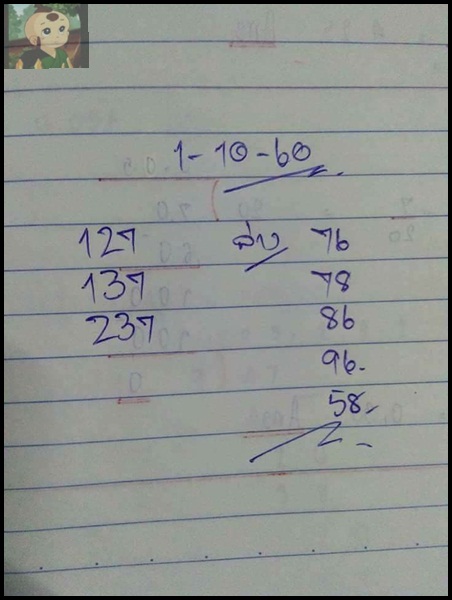 1-10-60
127 ล่าง 76
137 78
237 86
96.
58.